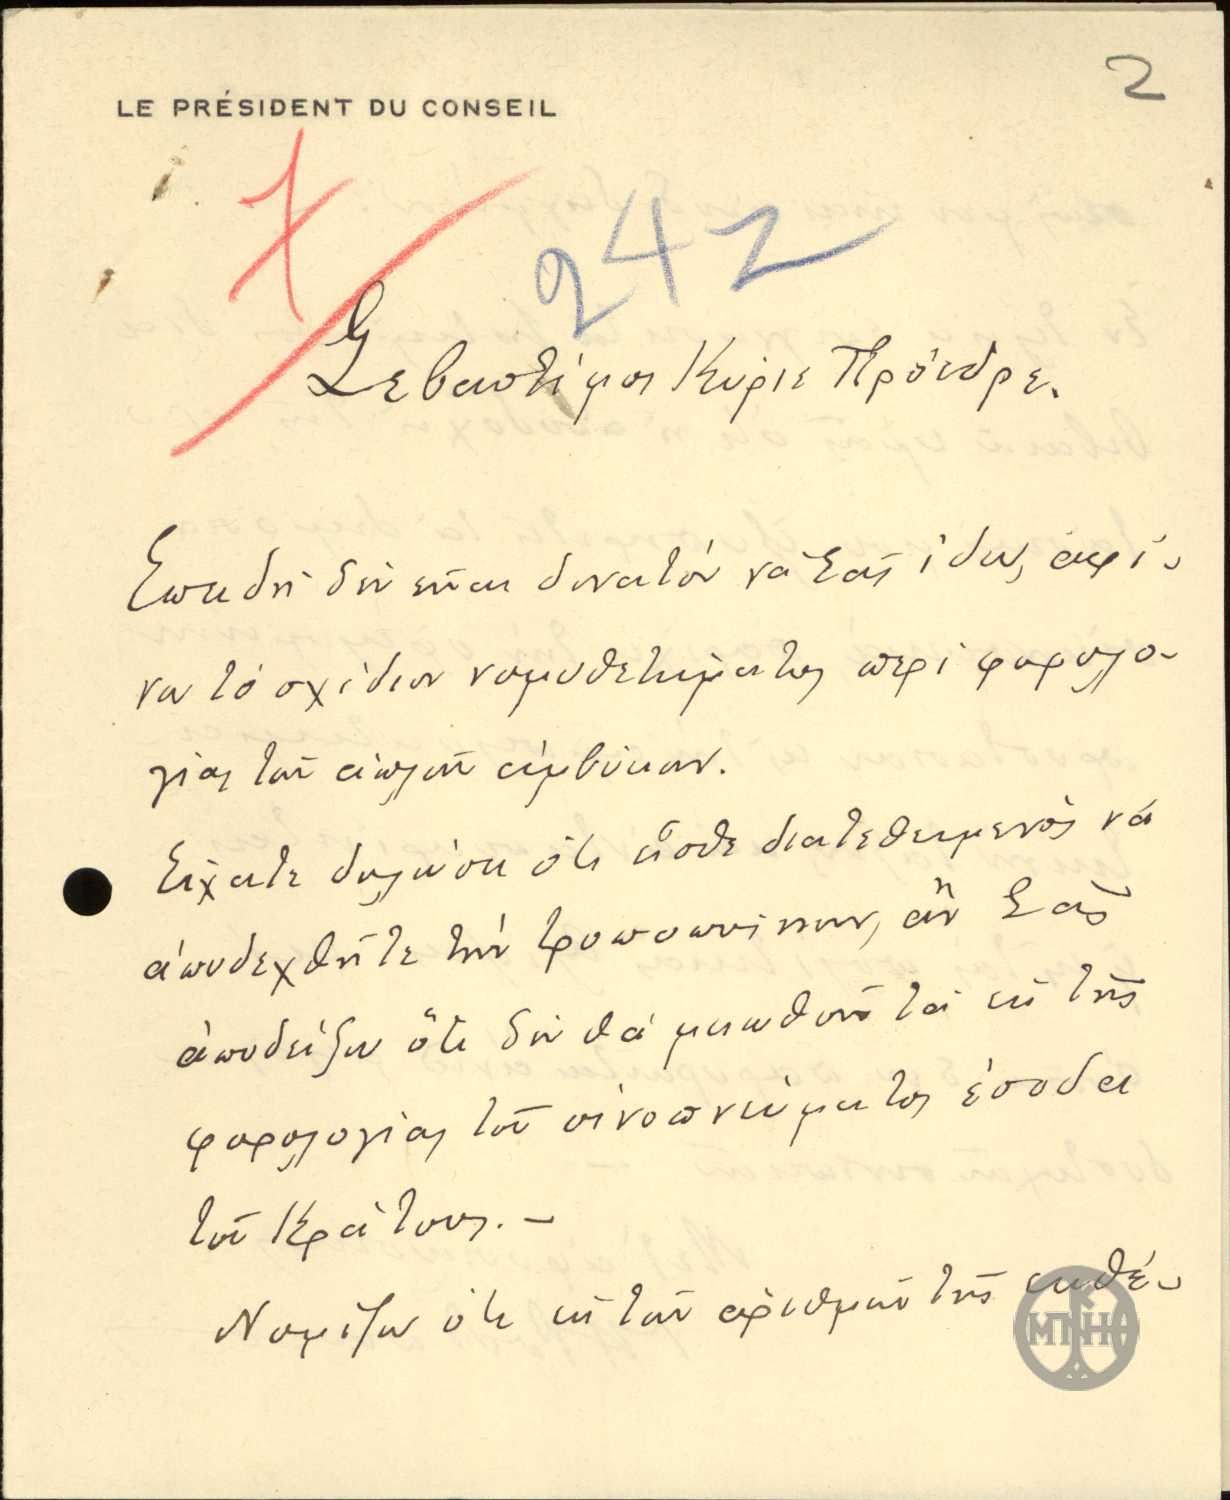 2
LE PRÉSIDENT DU CONSEIL
242
Σεβαστέ μοι Κύριε Πρόεδρε.
Ἐπειδὴ δὲν εἶναι δυνατόν νὰ Σᾶς ἴδω, ἀφί-
νω τὸ σχέδιον νομοθετήματος περὶ φορολο-
γίας τῶν ἁπλῶν ἀμβύκων.
Εἴχατε δηλώσει ὅτι εἶσθε διατεθειμένος νά
ἀποδεχθῆτε τὴν τροποποίησιν, ἂν Σᾶς
ἀποδείξω ὅτι δὲν θά μειωθοῦν τὰ ἐκ τῆς
φορολογίας τοῦ οἰνοπνεύματος ἔσοδα
τοῦ Κράτους. –
Νομίζω ὅτι ἐκ τῶν ἀριθμῶν τῆς ἐκθέ-
ΜΠΗ